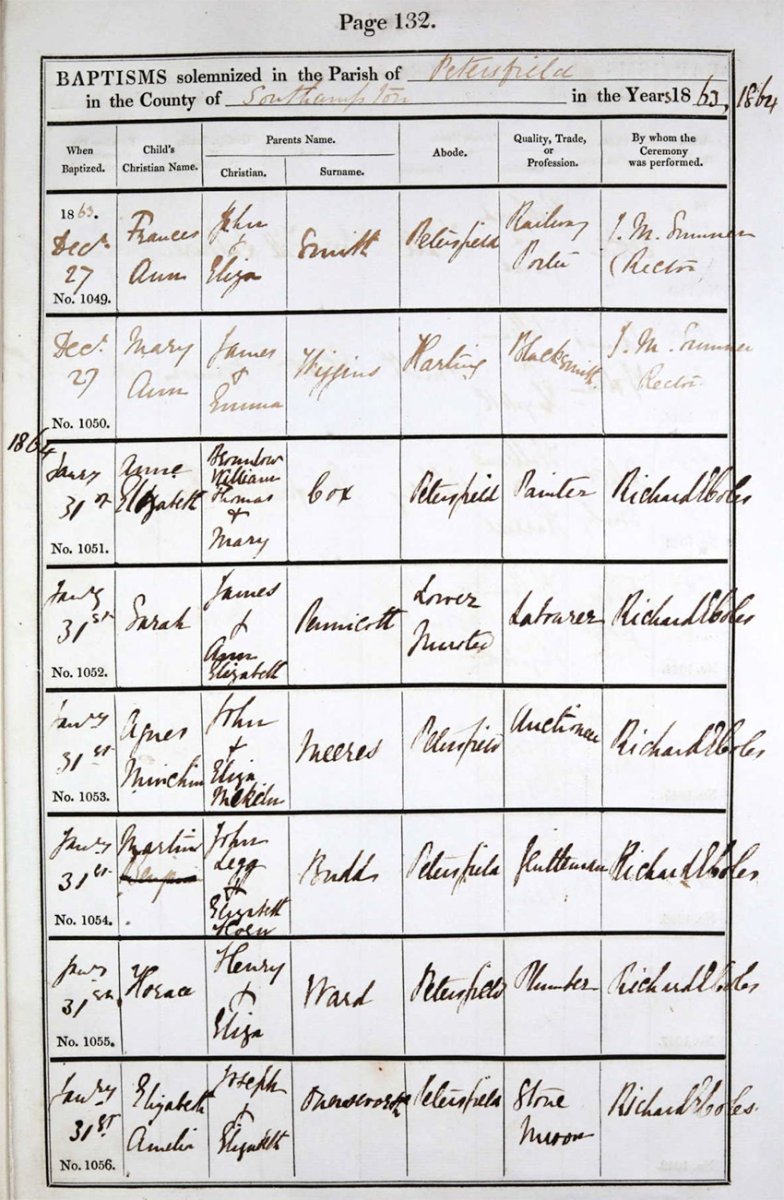 Page 132.
BAPTISMS solemnized in the Parish of Petersfield
in the County of Southampton in the Years 1863, 1864
When Baptized. Child's Christian Name. Parents Name. Christian. Surname. Abode. Quality, Trade, or Profession. By whom the Ceremony was performed.
1863. Decr 27 No. 1049. Frances Ann John & Eliza Smith Petersfield Railway Porter J. M. Sumner (Rector)
Decr 27 No. 1050. Mary Ann James & Emma Wiggins Harting Blacksmith. J. M. Sumner Rector
1864
Janry 31st No. 1051. Anne Elizabeth Brownlow William Thomas & Mary Cox Petersfield Painter Richard E Coles
Janry 31st No. 1052. Sarah James & Ann Elizabeth Pennicott Lower Labourer Richard E Coles
Janry 31st No. 1053. Agnes Minchin John & Eliza Meeres Petersfield Auctioneer Richard E Coles
Janry 31st No. 1054. Martin John Legg & Elizabeth Budds Petersfield Gentleman Richard E Coles
Janry 31st No. 1055. Horace Henry & Eliza Ward Petersfield Plumber Richard E Coles
Janry 31st No. 1056. Elizabeth Amelia Joseph & Elizabeth Petersfield Stone Mason Richard E Coles